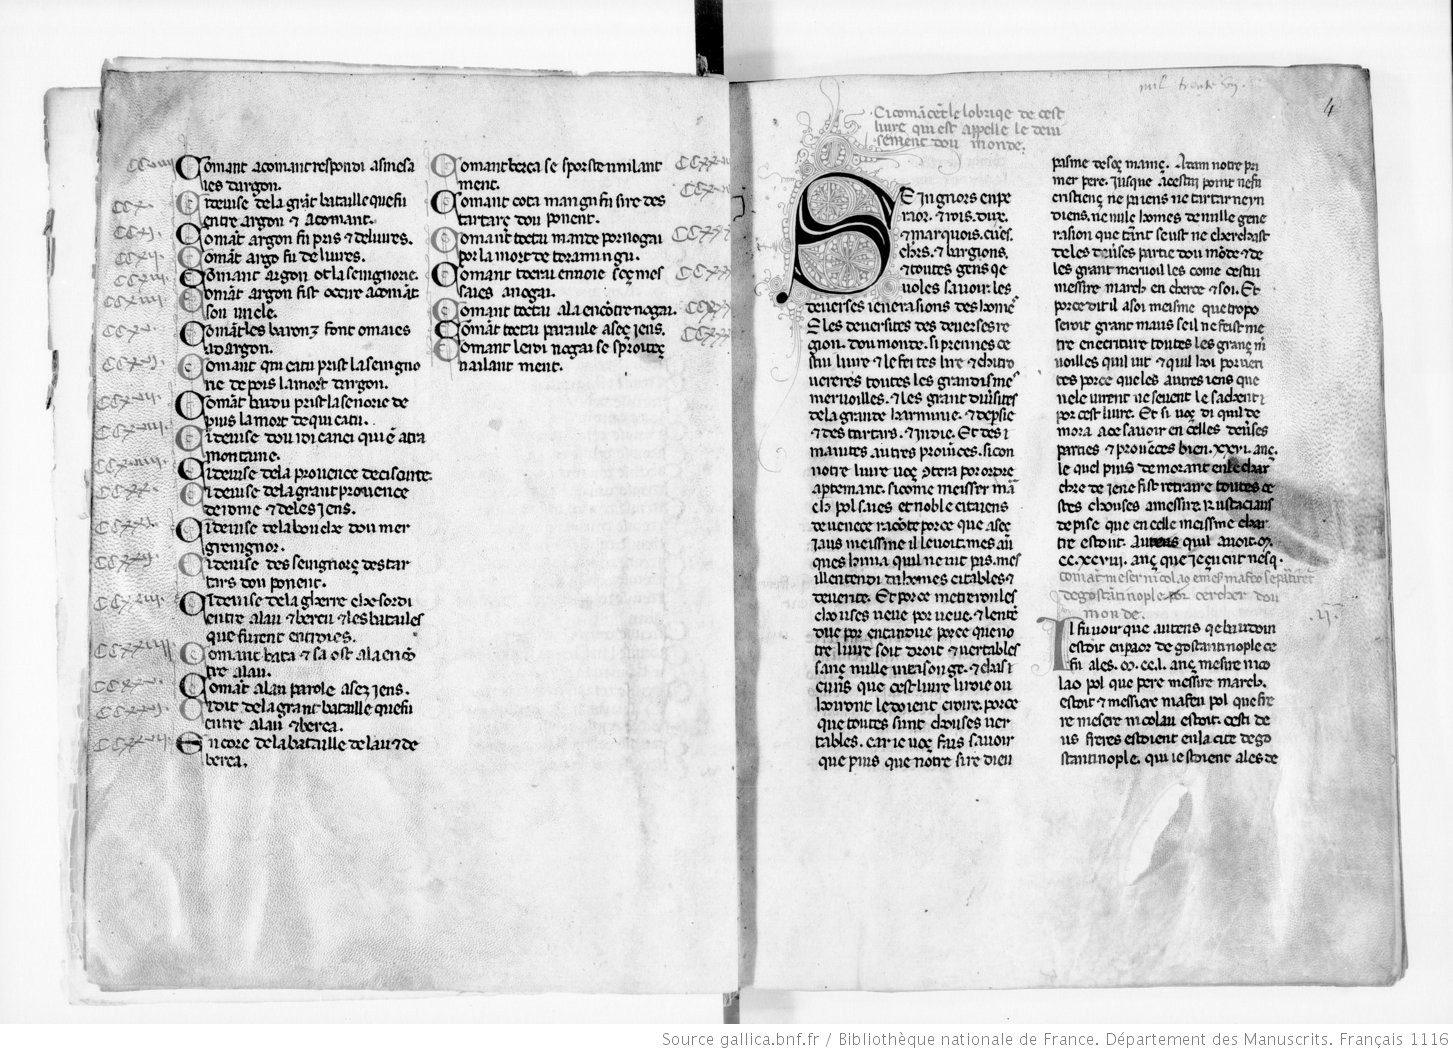 Comant acomant respondi as mesa
ies dargon.
Ci devise de la grāt bataille que fu
entre argon ⁊ acomant.
Comāt argon fu pris ⁊ delivres.
Comāt argo fu delivres.
Comant argon ot la seingnorie.
Comāt argon fist occire acomāt
son uncle.
Comāt les baronz font omaies
ad argon.
Comant qui catu prist la seingno
rie depois la mort dargon.
Comāt baidu prist la seńorie de
puis la mort de qui catu.
Ci devise dou roi canci qui ē atra
montaine.
Ci devise de la provence de
Ci devise de la grant provence
de rosie ⁊ de les jens.
Ci devise de la bouche dou mer
greingnor.
Ci devise des seingnorç des tar
tars dou ponent.
Ci devise de la gherre che sordi
entre alau ⁊ berca ⁊ les batailes
que furent entr
Comant bata ⁊ sa ost ala encō
tre alau.
Comāt alau parole a seç jens.
Ci dit de la grant bataille que fu
entre alau ⁊ berca.
Encore de la bataille de lau ⁊ de
berca.
Comant berca se
ment.
Comant cota mangu fu sire des
tartarç dou ponent.
Comant toctai mande por nogai
por la mort de toramingu.
Comant toctai envoie seç mes
saies a nogai.
Comant toctai ala encōtre nogai.
Comāt toctai paraule a seç jens.
Comant le roi nogai se
vailant ment.
4
Ci comācet le lobrique de cest
livre qui est appelle le devi
sement dou monde.
Seingnors enpe
raor ⁊ rois dux
⁊ marquois. cuēs.
chrs. ⁊ bargions.
⁊ toutes gens qe
voles savoir les
deverses jenerasions des homēs
E les deversites des deverses re
gion. dou monde. si prennes ce
stui livre ⁊ le feites lire ⁊ chi tro
vererés toutes les grandismes
mervoilles. ⁊ les grant dīvsites
de la grande harminie. ⁊ de psie
⁊ des tartars. ⁊ indie. Et des
maintes autres proīnces. si con
notre livre voç ꝯtera por ordre
apertemant. si come meisser mā
ch pol saies et noble citaiens
de venece racōte por ce que a seç
iaus meissme il le voit. mes auq
ques hi n'a qu'il ne vit pas. mes
il l'entendi da homes citables. ⁊
de verité. Et por ce metreron les
chouses veue por veue. ⁊ l'ente
due por entandue por ce que no
tre livre soit droit ⁊ vertables
sanç nulle mensonge. ⁊ chasc
cuīs que cest livre liroie ou
hoiront le doient croire. por ce
que toutes sunt chouses ver
tables. car je voç fais savoir
que puis que notre sire dieu
pasme de seç mainç. Adam notre pri
mer pere. jusque a cestui point ne fu
cristienç ne paiens ne tartar ne yn
diens. ne nule homes de nulle gene
rasion que tant seust ne cherchast
de les dēverses partie dou mōde ⁊ de
les grant mervoilles come cestui
messire march en cherce ⁊ soi. Et
por ce dit il a soi meisme que tropo
seroit grant maus se il ne feist me
tre en ecriture toutes les granç m
voilles qu'il vit ⁊ qu'il hoi por veri
tes por ce que les autres jens que
ne le virent ne sevent le sachent
por cest livre. Et si voç di qu'il de
mora a ce savoir en celles dēverses
parties ⁊ provēces bien. xxvi. anz.
le quel puis demorant en le char
chre de jene fist retraire toutes ce
stes chouses a messire rustacians
de pise que en celle meissme char
tre estoit. au tens qu'il avoit. m.
cc. xcviii. anç que jeçu crit nesq.
Comāt meser nicolao e meser mafeo se partirēt
de gostantinople por cercher dou
monde.
Il fu voir que au tens qe baudoin
estoit enpaor de gostantinople ce
fu a les. m. cc. l. anç. mesire nico
lao pol que pere messire march.
estoit ⁊ messiere mafeu pol que fre
re mesere nicolau estoit. cesti de
us freres estoient en la cite de go
stantinople. qui i estoient ales de
Source gallica.bnf.fr / Bibliothèque nationale de France. Département des Manuscrits. Français 1116